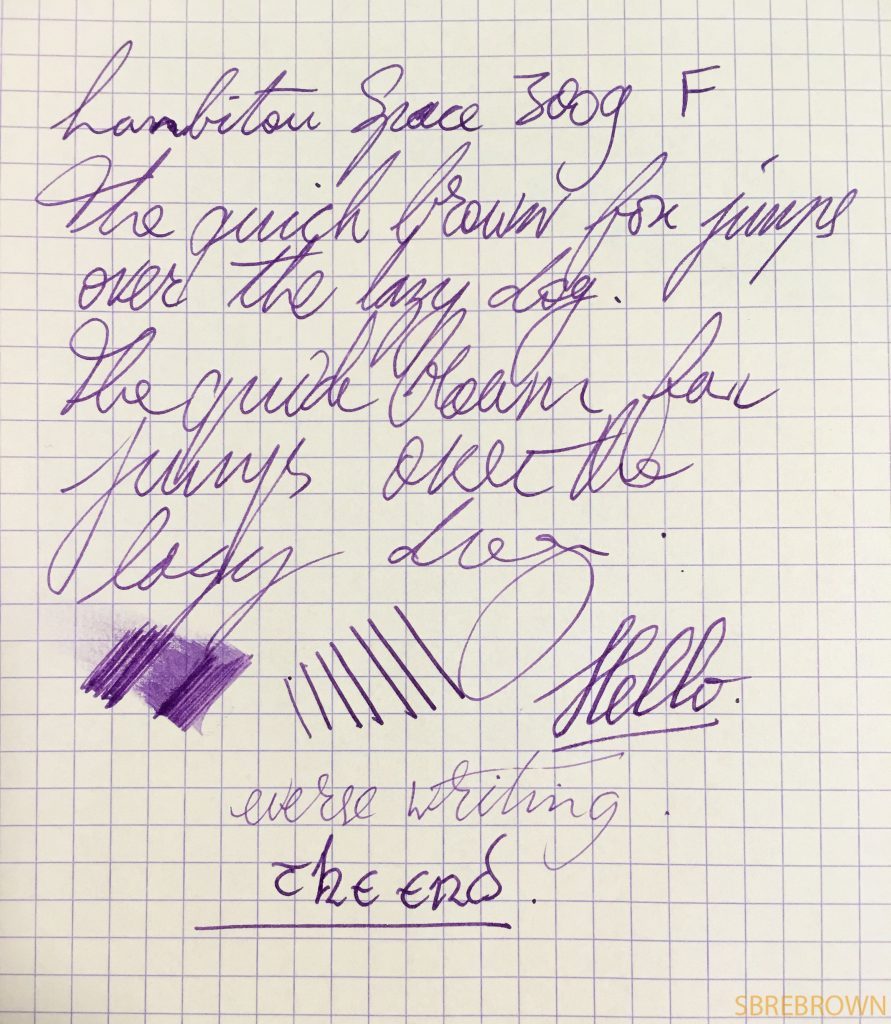 Lanbitou Space 3009 F
The quick brown fox jumps
over the lazy dog.
The quick brown fox
jumps over the
lazy dog.
Hello.
everse writing.
The end.
SBREBROWN